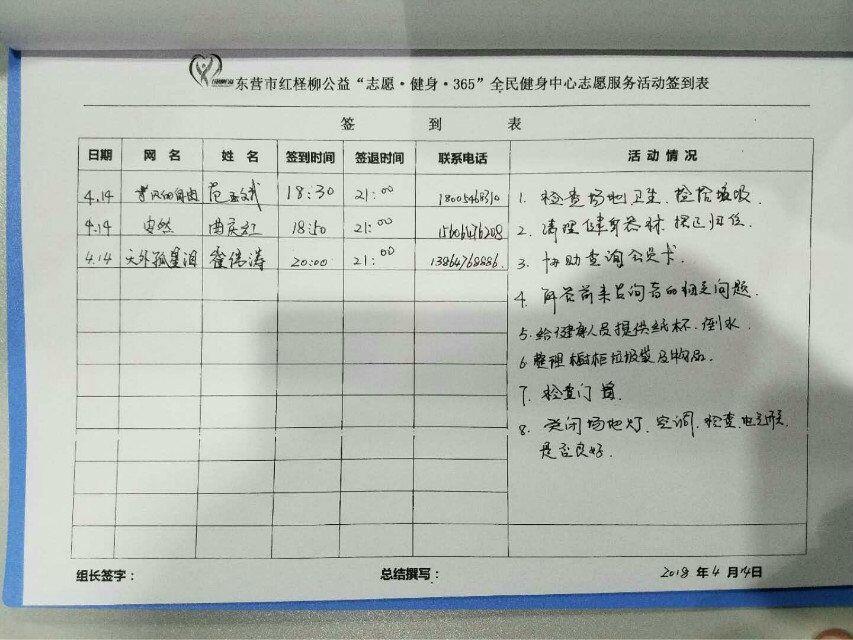 东营市红柽柳公益“志愿·健身·365”全民健身中心志愿服务活动签到表
签 到 表
日期 网 名 姓 名 签到时间 签退时间 联系电话 活动情况
4.14 范孟斌 18:30 21:00
4.14 曲庆红 18:50 21:00 15606476208
4.14 天外孤星泪 翟伟涛 20:00 21:00 13864768886
1. 检查场地卫生、捡拾垃圾
2. 清理健身器材、摆正归位.
3. 协助查询会员卡.
4. 解答前来咨询者的相关问题.
5. 给健身人员提供纸杯、倒水
6 整理橱柜垃圾袋及物品.
7. 检查门窗
8. 关闭场地灯、空调、检查电
是否良好.
组长签字： 总结撰写： 2018 年 4 月 14日